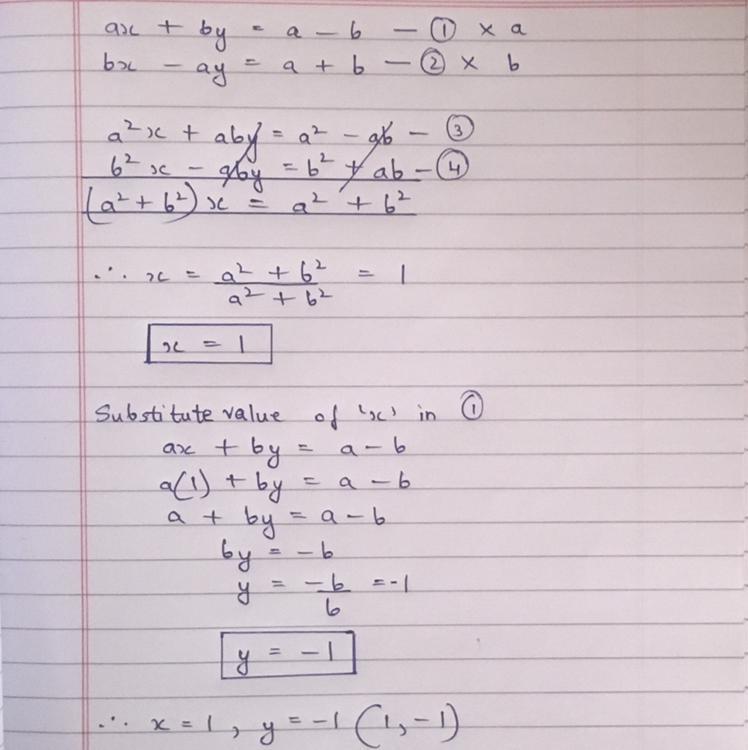 ax + by = a - b - ① × a
bx - ay = a + b - ② × b
a²x + aby = a² - ab - ③
b²x - aby = b² + ab - ④
(a² + b²)x = a² + b²
∴ x = (a² + b²)/(a² + b²) = 1
x = 1
Substitute value of 'x' in ①
ax + by = a - b
a(1) + by = a - b
a + by = a - b
by = -b
y = -b/b = -1
y = -1
∴ x = 1, y = -1 (1, -1)